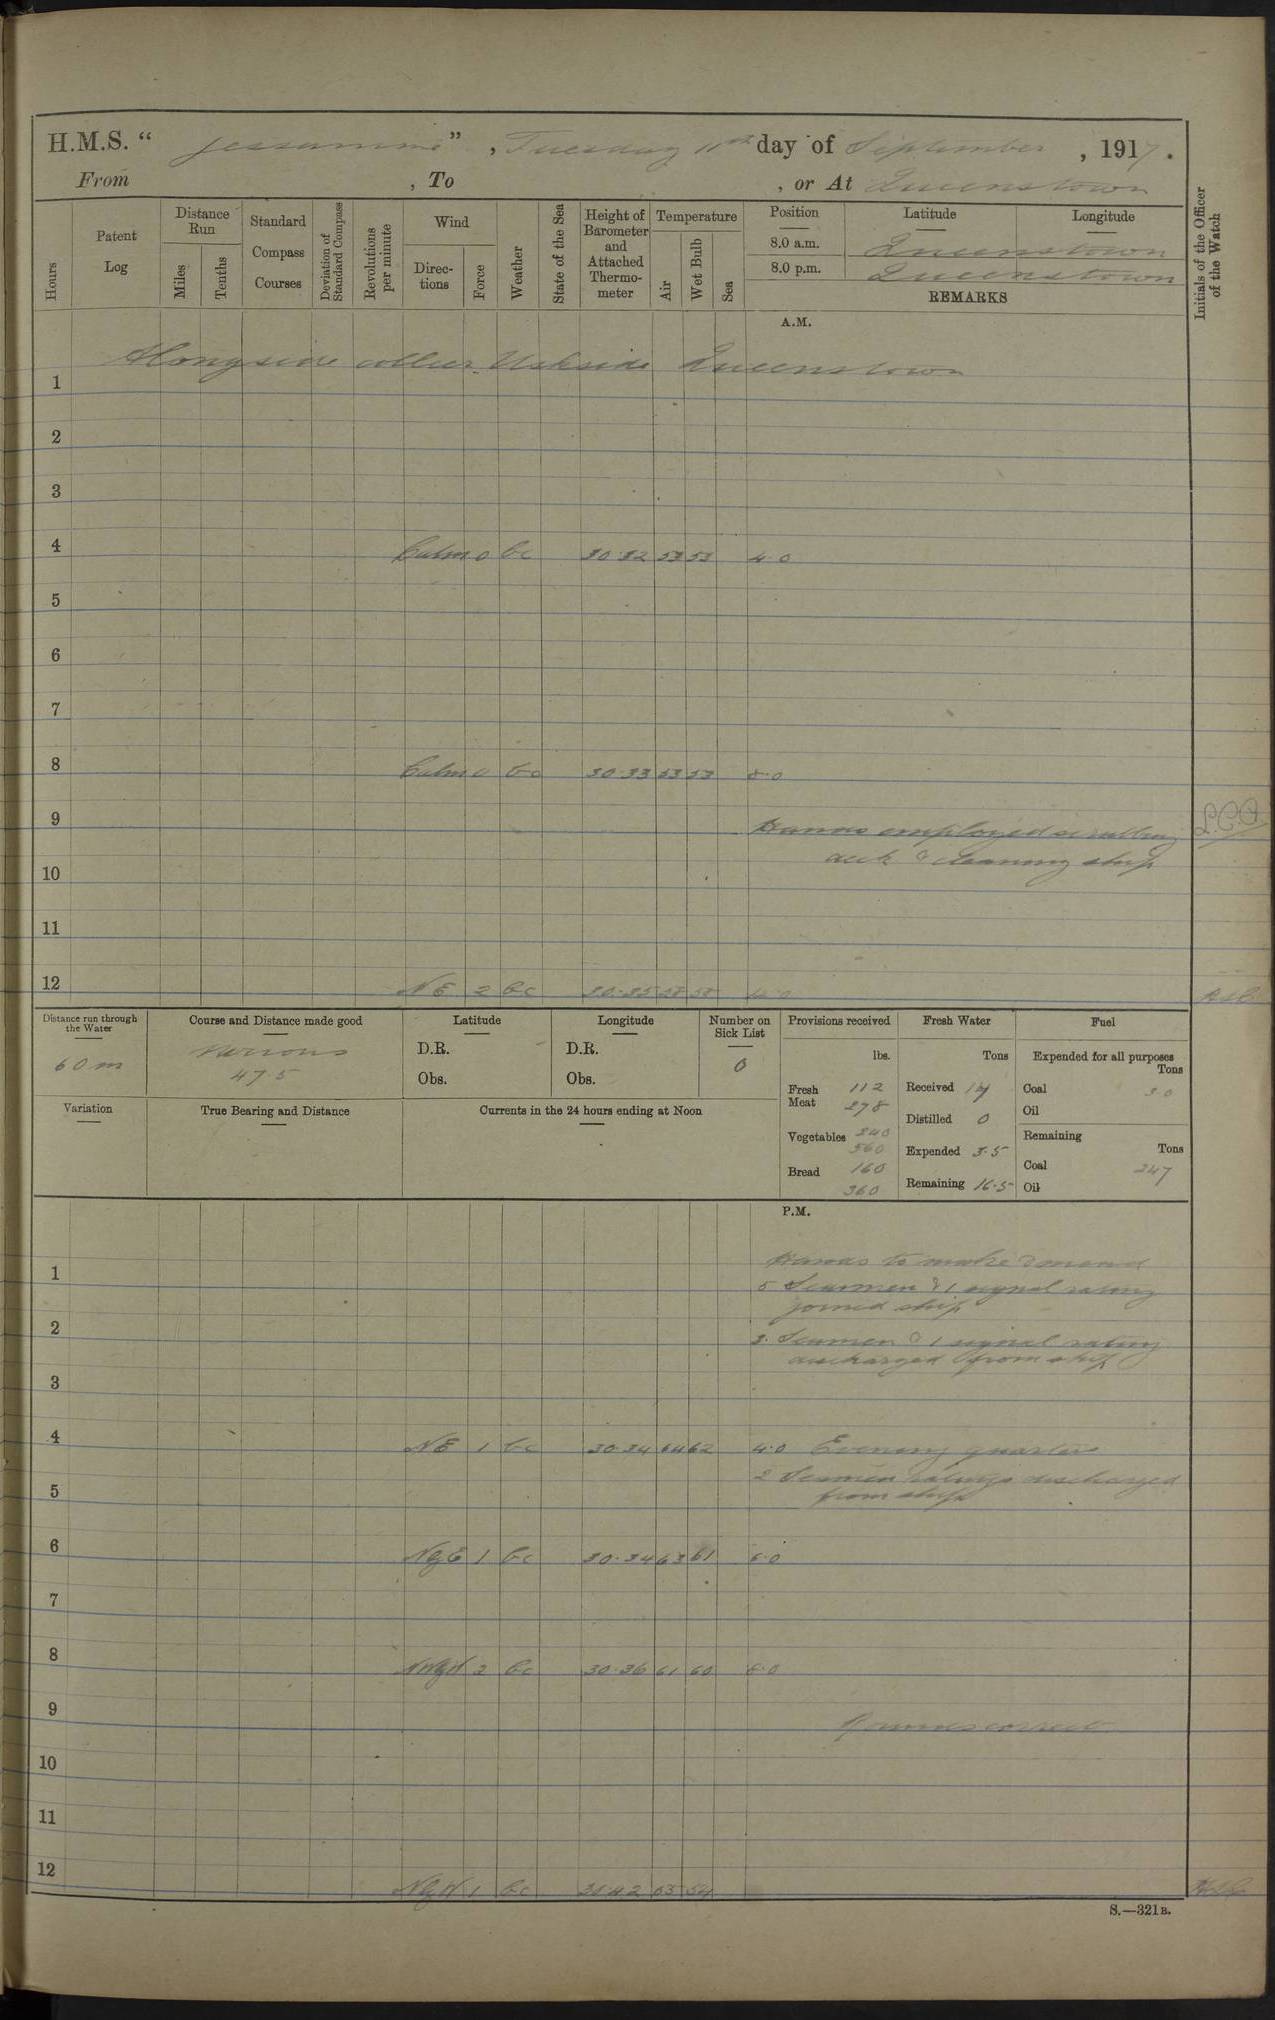 H.M.S. “ Jessamine ” , Tuesday 11th day of September , 1917.
From , To , or At Queenstown
Hours
Patent Log
Distance Run
Miles
Tenths
Standard Compass Courses
Deviation of Standard Compass
Revolutions per minute
Wind
Direc-tions
Force
Weather
State of the Sea
Height of Barometer and Attached Thermo-meter
Temperature
Air
Wet Bulb
Sea
Position Latitude Longitude
8.0 a.m. Queenstown
8.0 p.m. Queenstown
REMARKS
Initials of the Officer of the Watch
A.M.
Alongside collier Uskside Queenstown
1
2
3
4 Calm 0 bc 30.32 53 53 4.0
5
6
7
8 Calm 0 bc 30.33 53 53 8.0
9 Hands employed scrubbing
deck & cleaning ship
10
11
12 NE 2 bc 30.35 58 58 12.0
Distance run through the Water
60 m
Course and Distance made good
Various
475
Latitude
D.R.
Obs.
Longitude
D.R.
Obs.
Number on Sick List
0
Provisions received
lbs.
Fresh Meat 112
278
Vegetables 240
560
Bread 160
360
Fresh Water
Tons
Received 14
Distilled 0
Expended 3.5
Remaining 16.5
Fuel
Expended for all purposes
Tons
Coal 30
Oil
Remaining
Tons
Coal 247
Oil
Variation
True Bearing and Distance
Currents in the 24 hours ending at Noon
P.M.
Hands to make & mend
1
5 Seamen & 1 signal rating
joined ship
2
3. Seamen & 1 signal rating
discharged from ship
3
4 NE 1 bc 30.34 64 62 4.0 Evening quarters
2 Seamen ratings discharged
5
from ship
6 NbE 1 bc 30.34 63 61 6.0
7
8 NWbN 2 bc 30.36 61 60 8.0
9 Rounds correct
10
11
12 NbW 1 bc 30.42 55 54
S.—321B.